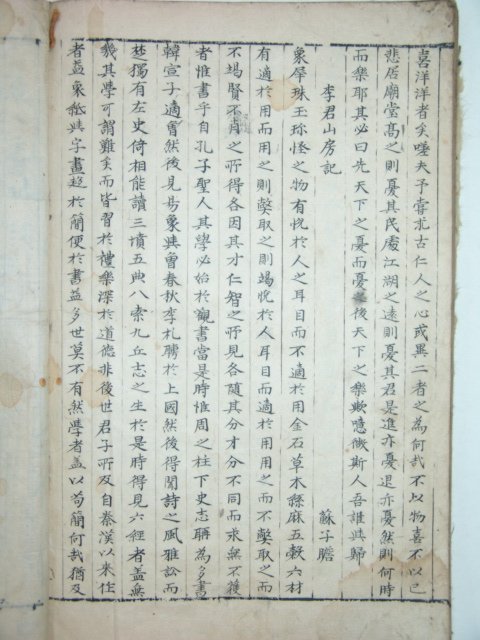 喜洋洋者矣嗟夫予嘗求古仁人之心或異二者之為何哉不以物喜不以己
悲居廟堂髙之則憂其民處江湖之遠則憂其君是進亦憂退亦憂然則何時
而樂耶其必曰先天下之憂而憂後天下之樂歟噫微斯人吾誰與歸
李君山房記 蘇子瞻
象犀珠玉珎怪之物有恱於人之耳目而不適於用金石草木絲麻五穀六材
有適於用而用之則獘取之則竭恱於人耳目而適於用用之而不獘取之而
不竭賢不肖之所得各因其才仁智之所見各随其分才分不同而求無不獲
者惟書乎自孔子聖人其學必始於觀書當是時惟周之柱下史老聃為多書
韓宣子適魯然後見易象與魯春秋季札聘於上國然後得聞詩之風雅訟而
楚獨有左史倚相能讀三墳五典八索九丘志之生於是時得見六經者盖無
幾其學可謂難矣而皆習於禮樂深於道德非後世君子所及自秦漢以来作
者益衆紙與字畫趍於簡便於書益多世莫不有然學者盖以苟簡何哉猶及